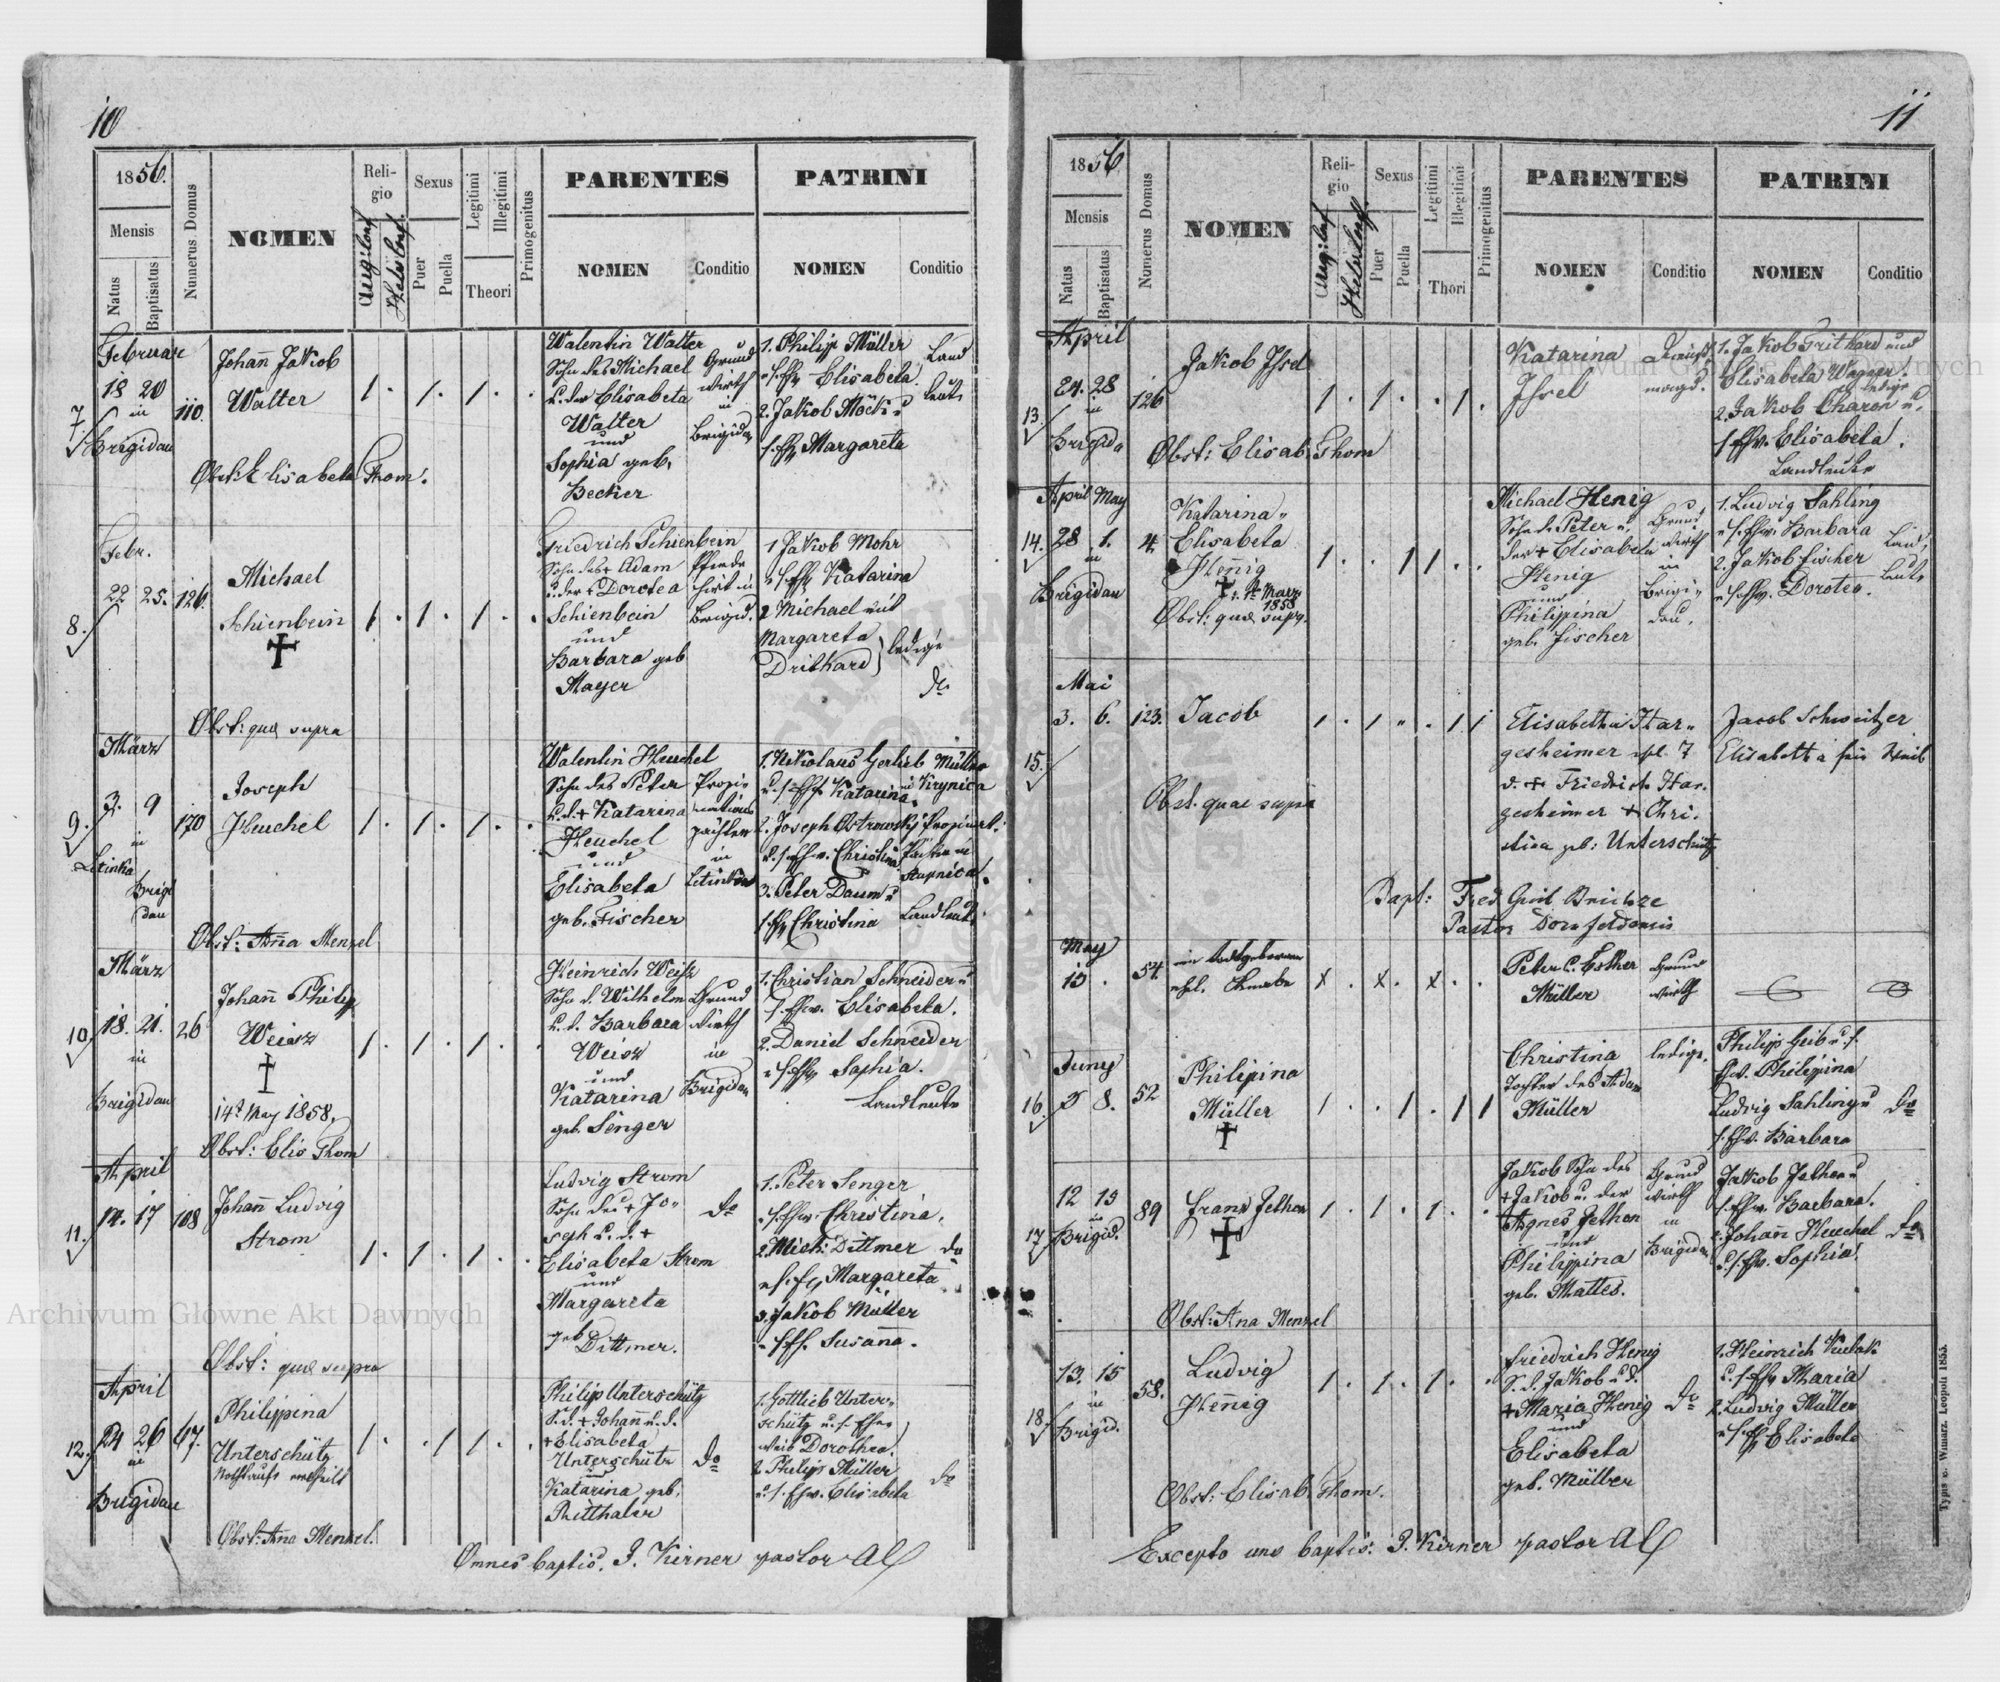 10
1856.
Mensis
Natus
Baptisatus
Numerus Domus
NOMEN
Religio
Aug: Conf
Helv: Conf.
Sexus
Puer
Puella
Legitimi
Illegitimi
Theori
Primogenitus
PARENTES
NOMEN
Conditio
PATRINI
NOMEN
Conditio
7.
Februar
18 20
in
Brigidau
110.
Johann Jakob
Walter
Obst: Elisabeta Thom.
1 . 1 . 1 . .
Walentin Walter
Sohn des Michael
u. der Elisabeta
Walter
und
Sophia geb.
Becker
Grund
wirth
in
Brigidau
1. Philip Müller
u. s. Ehw Elisabeta.
2. Jakob Möck u
s. Ehw Margareta
Land
leute
8.
Febr.
22 25.
126.
Michael
Schienbein
Obst: quae supra
1 . 1 . 1 . .
Friedrich Schienbein
Sohn des + Adam
u. der + Dorotea
Schienbein
und
Barbara geb
Mayer
Pferde
hirt in
Brigid.
1 Jakob Mohr
u s Ehw Katarina
2 Michael und
Margareta
Drithard
ledige
do
9.
März
3. 9
in
Letinka
Brigi
dau
170
Joseph
Heuchel
Obst: Anna Menzel
1 . 1 . 1 . .
Walentin Heuchel
Sohn des Peter
u. d. + Katarina
Heuchel
und
Elisabeta
geb. Fischer
Propi-
nations
pächter
in
Letinka
1. Nikolaus Gerlieb Müller
u. s. Ehw Katarina in Krynica
2. Joseph Ostrowski Propinat.
u. s. Ehw. Christina Pächter in
Stupnica.
3. Peter Daum u
s. Ehw Christina Landleute
10.
März
18. 21.
in
Brigidau
26
Johann Philip
Weisz
14t May 1858.
Obst: Elis Thom
1 . 1 . 1 . .
Heinrich Weisz
Sohn d. Wilhelm
u. d. Barbara
Weisz
und
Katarina
geb. Senger
Grund
wirth
in
Brigidau
1. Christian Schneider u
s. Ehw. Elisabeta.
2. Daniel Schneider
u s. Ehw Sophia.
Landleute
11.
April
14. 17
108
Johann Ludvig
Strom
Obst: quae supra
1 . 1 . 1 . .
Ludvig Strom
Sohn des + Jo-
seph u. d. +
Elisabeta Strom
und
Margareta
geb
Dittmer.
do
1. Peter Senger
u. s. Ehw. Christina.
2. Mich: Dittmer do
u. s. Ehw Margareta
3. Jakob Müller
u s. Eh. Susanna.
12.
April
24 26
in
Brigidau
67.
Philippina
Unterschütz
Nothtaufe ertheilt
Obst: Anna Menzel.
1 . . 1 1 . .
Philip Unterschütz
S. d. + Johann u. d.
+ Elisabeta
Unterschütz
und
Katarina geb.
Ritthaler
do
1. Gottlieb Unter-
schütz u. s. Ehe-
weib Dorothea.
2. Philip Müller
u. s. Ehw. Elisabeta
do
Omnes baptis. J. Kirner pastor AC
11
1856
Mensis
Natus
Baptisatus
Nomerus Domus
NOMEN
Religio
Aug: Conf
Helv: Conf.
Sexus
Puer
Puella
Legitimi
Illegitimi
Thori
Primogenitus
PARENTES
NOMEN
Conditio
PATRINI
NOMEN
Conditio
13.
April
24. 28
in
Brigida
126
Jakob Isrel
Obst: Elisab. Thom
1 . 1 . . 1 .
Katarina
Isrel
Dienst
magd.
1. Jakob Drithard und
Elisabeta Wagner.
ledige
2. Jakob Charon u.
s. Ehw. Elisabeta.
Landleute
14.
April May
28 1.
in
Brigidau
4
Katarina-
Elisabeta
Henig
+ 1t März
1858
Obst: quae supra.
1 . . 1 1 . .
Michael Henig
Sohn d. Peter u.
der + Elisabeta
Henig
und
Philippina
geb. Fischer
Grund
wirth
in
Brigi-
dau.
1. Ludvig Sahling
u. s. Ehw. Barbara
2. Jakob Fischer
u. s. Ehw. Dorotea.
Land
leute
15.
Mai
3. 6.
123.
Jacob
Obst. quae supra
1 . 1 " . 1 1
Elisabetha Har-
gesheimer
d. + Friedrich Har-
gesheimer + Chri-
stina geb: Unterschütz
Jacob Schweitzer
Elisabetha sein Weib
Bapt: Fried Guil Beichze
Pastor Dornfeldensis
May
13 .
54.
ein todtgeborner
ehel. Knabe
x . x . x . .
Peter u. Esther
Müller
Grund
wirth
16.
Juny
5 8.
52
Philipina
Müller
1 . . 1 . 1 1
Christina
Tochter des Adam
Müller
ledige.
Philipp Geib u. s.
Ehw. Philippina
Ludvig Sahling u
s. Ehw. Barbara
do
17.
12 15
in
Brigid.
89
Franz Jethon
Obst: Anna Menzel
1 . 1 . 1 . .
Jakob Sohn des
+ Jakob u. der
+ Agnes Jethon
und
Philippina
geb. Mattes.
Grund
wirth
in
Brigidau
Jakob Jethon u
s. Ehw. Barbara.
2. Johann Heuchel
u. s. Ehw. Sophia.
do
18.
13. 15
in
Brigid.
58.
Ludvig
Hennig
Obst: Elisab. Thom.
1 . 1 . 1 . .
Friedrich Henig
S. d. Jakob u. d.
+ Maria Henig
und
Elisabeta
geb. Müller
do
1. Heinrich Kubok
u. s. Ehw Maria
2. Ludvig Müller
u s. Ehw Elisabeta
Excepto uno baptis: J. Kirner pastor AC
Typis v. Winiarz. Leopoli 1855.
Archiwum Główne Akt Dawnych
Archiwum Główne Akt Dawnych